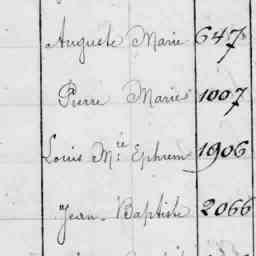 Auguste Marie 647
Pierre Marie 1007
Louis M.ie Ephrem 1906
Jean Baptiste 2066